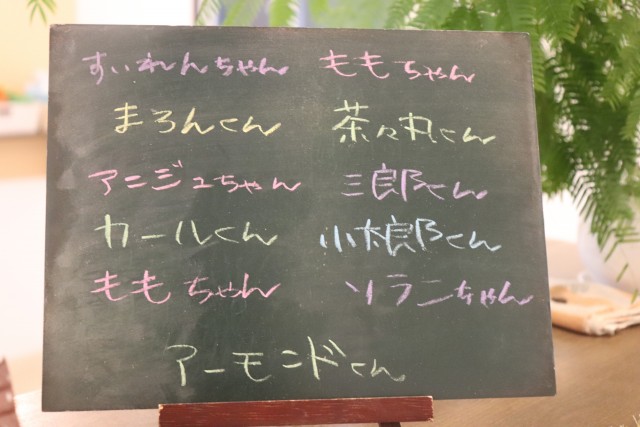 すいれんちゃん ももちゃん
まろんくん 茶々丸くん
アニジュちゃん 三郎くん
カールくん 小太郎くん
ももちゃん ソランちゃん
アーモンドくん